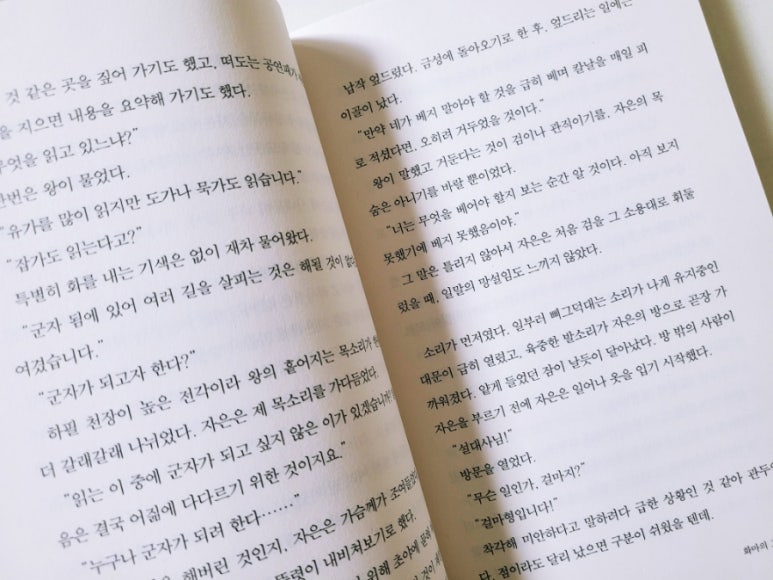 것 같은 곳을 짚어 가기도 했고, 떠도는 공연패가
을 지으면 내용을 요약해 가기도 했다.
무엇을 읽고 있느냐?"
한번은 왕이 물었다.
"유가를 많이 읽지만 도가나 묵가도 읽습니다."
"잡가도 읽는다고?"
특별히 화를 내는 기색은 없이 재차 물어왔다.
"군자 됨에 있어 여러 길을 살피는 것은 해될 것이
여겼습니다."
"군자가 되고자 한다?"
하필 천장이 높은 전각이라 왕의 흩어지는 목소리가
더 갈래갈래 나뉘었다. 자은은 제 목소리를 가다듬었다.
"읽는 이 중에 군자가 되고 싶지 않은 이가 있겠습니까?
음은 결국 어짊에 다다르기 위한 것이지요."
"누구나 군자가 되려 한다……"
해버린 것인지, 자은은 가슴께가
뚜렷이 내비쳐보기로 했다.
위해 초아에
납작 엎드렸다. 금성에 돌아오기로 한 후, 엎드리는 일에는
이골이 났다.
"만약 네가 베지 말아야 할 것을 급히 베며 칼날을 매일 피
로 적셨다면, 오히려 거두었을 것이다."
왕이 말했고 거둔다는 것이 검이나 관직이기를, 자은의 목
숨은 아니기를 바랄 뿐이었다.
"너는 무엇을 베어야 할지 보는 순간 알 것이다. 아직 보지
못했기에 베지 못했음이야."
그 말은 틀리지 않아서 자은은 처음 검을 그 소용대로 휘둘
렀을 때, 일말의 망설임도 느끼지 않았다.
소리가 먼저였다. 일부러 삐그덕대는 소리가 나게 유지중인
대문이 급히 열렸고, 육중한 발소리가 자은의 방으로 곧장 가
까워졌다. 얕게 들었던 잠이 날듯이 달아났다. 방 밖의 사람이
자은을 부르기 전에 자은은 일어나 옷을 입기 시작했다.
"설대사님!"
방문을 열었다.
"무슨 일인가, 걸마지?"
"걸마형입니다!"
착각해 미안하다고 말하려다 급한 상황인 것 같아 관두
다. 점이라도 달리 났으면 구분이 쉬웠을 텐데.
화마의